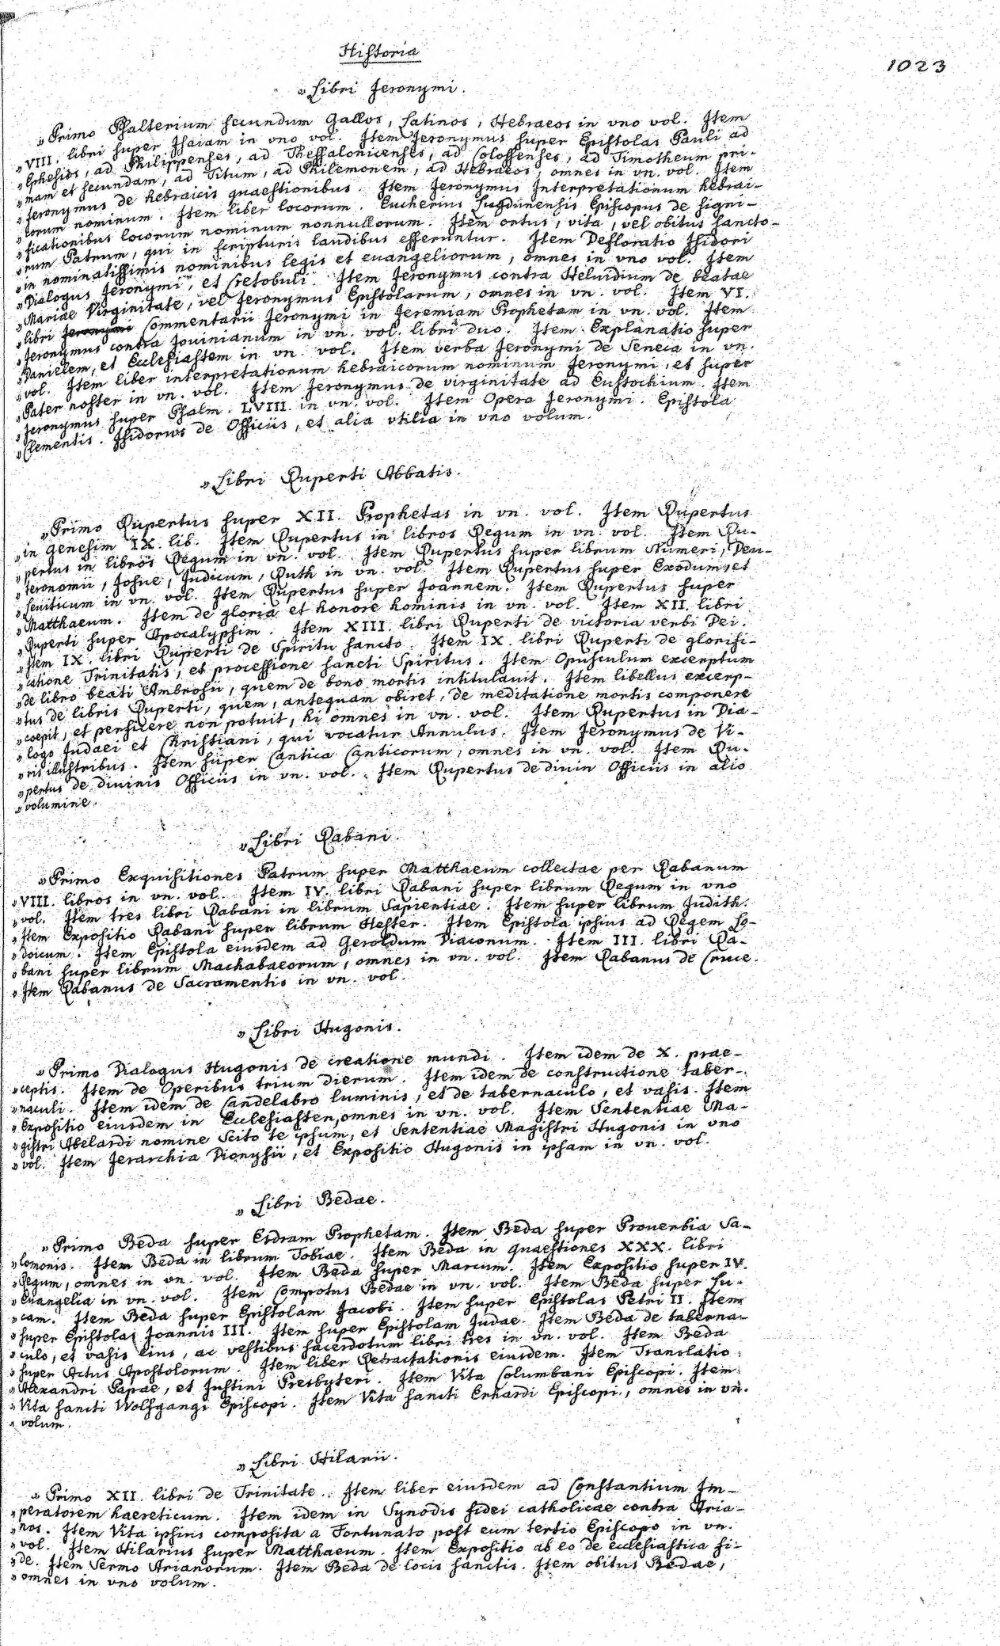 Historia
1023
„Libri Jeronymi.
„Primo Psalterium secundum Gallos, Latinos, Hebraeos in vno vol. Item
„VIII. libri super Isaiam in vno vol. Item Jeronymus super Epistolas Pauli ad
„Ephesios, ad Philippenses, ad Thessalonicenses, ad Colossenses, ad Timotheum pri-
„mam et secundam, ad Titum, ad Philemonem, ad Hebraeos, omnes in vn. vol. Item
„Jeronymus de hebraicis quaestionibus. Item Jeronymus Interpretationum hebrai-
„corum nominum. Item liber locorum. Eucherius Lugdunensis Episcopus de signi-
„ficationibus locorum nominum nonnullorum. Item ortus, vita, vel obitus sancto-
„rum Patrum, qui in scripturis laudibus efferuntur. Item Defloratio Isidori
„in nominatissimis nominibus legis et euangeliorum, omnes in vno vol. Item
„Dialogus Jeronymi, et Cretobuli. Item Jeronymus contra Heluidium de beatae
„Mariae Virginitate, vel Jeronymus Epistolarum, omnes in vn. vol. Item VI.
„libri Jeronymi Commentarii Jeronymi in Jeremiam Prophetam in vn. vol. Item
„Jeronymus contra Jouinianum in vn. vol. libri duo. Item Explanatio super
„Danielem, et Ecclesiastem in vn. vol. Item verba Jeronymi de Seneca in vn.
„vol. Item liber interpretationum hebraicorum nominum Jeronymi, et super
„Pater noster in vn. vol. Item Jeronymus de virginitate ad Eustochium. Item
„Jeronymus super Psalm. LVIII. in vn. vol. Item Opera Jeronymi. Epistola
„Clementis. Isidorus de Officiis, et alia vtilia in vno volum.
„Libri Ruperti Abbatis.
„Primo Rupertus super XII. Prophetas in vn. vol. Item Rupertus
„in Genesim IX. lib. Item Rupertus in libros Regum in vn. vol. Item Ru-
„pertus in libros Regum in vn. vol. Item Rupertus super librum Numeri, Deu-
„teronomii, Josue, Judicum, Ruth in vn. vol. Item Rupertus super Exodum, et
„Leuiticum in vn. vol. Item Rupertus super Joannem. Item Rupertus super
„Matthaeum. Item de gloria et honore hominis in vn. vol. Item XII. libri
„Ruperti super Apocalypsim. Item XIII. libri Ruperti de victoria verbi Dei.
„Item IX. libri Ruperti de Spiritu sancto. Item IX. libri Ruperti de glorifi-
„catione Trinitatis, et processione sancti Spiritus. Item Opusculum excerptum
„de libro beati Ambrosii, quem de bono mortis intitulauit. Item libellus excerp-
„tus de libris Ruperti, quem, antequam obiret, de meditatione mortis componere
„coepit, et perficere non potuit, hi omnes in vn. vol. Item Rupertus in Dia-
„logo Judaei et Christiani, qui vocatur Annulus. Item Jeronymus de Vi-
„ris illustribus. Item super Cantica Canticorum, omnes in vn. vol. Item Ru-
„pertus de diuinis Officiis in vn. vol. Item Rupertus de diuin Officiis in alio
„volumine.
„Libri Rabani.
„Primo Exquisitiones Patrum super Matthaeum collectae per Rabanum
„VIII. libros in vn. vol. Item IV. libri Rabani super librum Regum in vno
„vol. Item tres libri Rabani in librum Sapientiae. Item super librum Judith.
„Item Expositio Rabani super librum Hester. Item Epistola ipsius ad Regem Lo-
„doicum. Item Epistola eiusdem ad Geroldum Diaconum. Item III. libri Ra-
„bani super librum Machabaeorum, omnes in vn. vol. Item Rabanus de Cruce.
„Item Rabanus de Sacramentis in vn. vol.
„Libri Hugonis.
„Primo Dialogus Hugonis de creatione mundi. Item idem de X. prae-
„ceptis. Item de Operibus trium dierum. Item idem de constructione taber-
„naculi. Item idem de Candelabro luminis, et de tabernaculo, et vasis. Item
„Expositio eiusdem in Ecclesiasten, omnes in vn. vol. Item Sententiae Ma-
„gistri Abelardi nomine Scito te ipsum, et Sententiae Magistri Hugonis in vno
„vol. Item Jerarchia Dionysii, et Expositio Hugonis in ipsam in vn. vol.
„Libri Bedae.
„Primo Beda super Esdram Prophetam. Item Beda super Prouerbia Sa-
„lomonis. Item Beda in librum Tobiae. Item Beda in quaestiones XXX. libri
„Regum, omnes in vn. vol. Item Beda super Marcum. Item Expositio super IV.
„Euangelia in vn. vol. Item Compotus Bedae in vn. vol. Item Beda super Lu-
„cam. Item Beda super Epistolam Jacobi. Item super Epistolas Petri II. Item
„super Epistolas Joannis III. Item super Epistolam Judae. Item Beda de taberna-
„culo, et vasis eius, ac vestibus sacerdotum libri tres in vn. vol. Item Beda
„super Actus Apostolorum. Item liber Retractationis eiusdem. Item Translatio
„Alexandri Papae, et Justini Presbyteri. Item Vita Columbani Episcopi. Item
„Vita sancti Wolfgangi Episcopi. Item Vita sancti Erhardi Episcopi, omnes in vn.
„volum.
„Libri Hilarii.
„Primo XII. libri de Trinitate. Item liber eiusdem ad Constantium Im-
„peratorem haereticum. Item idem in Synodis fidei catholicae contra Aria-
„nos. Item Vita ipsius composita a Fortunato post eum tertio Episcopo in vn.
„vol. Item Hilarius super Matthaeum. Item Expositio ab eo de ecclesiastica fi-
„de. Item Sermo Arianorum. Item Beda de locis sanctis. Item obitus Bedae,
„omnes in vno volum.